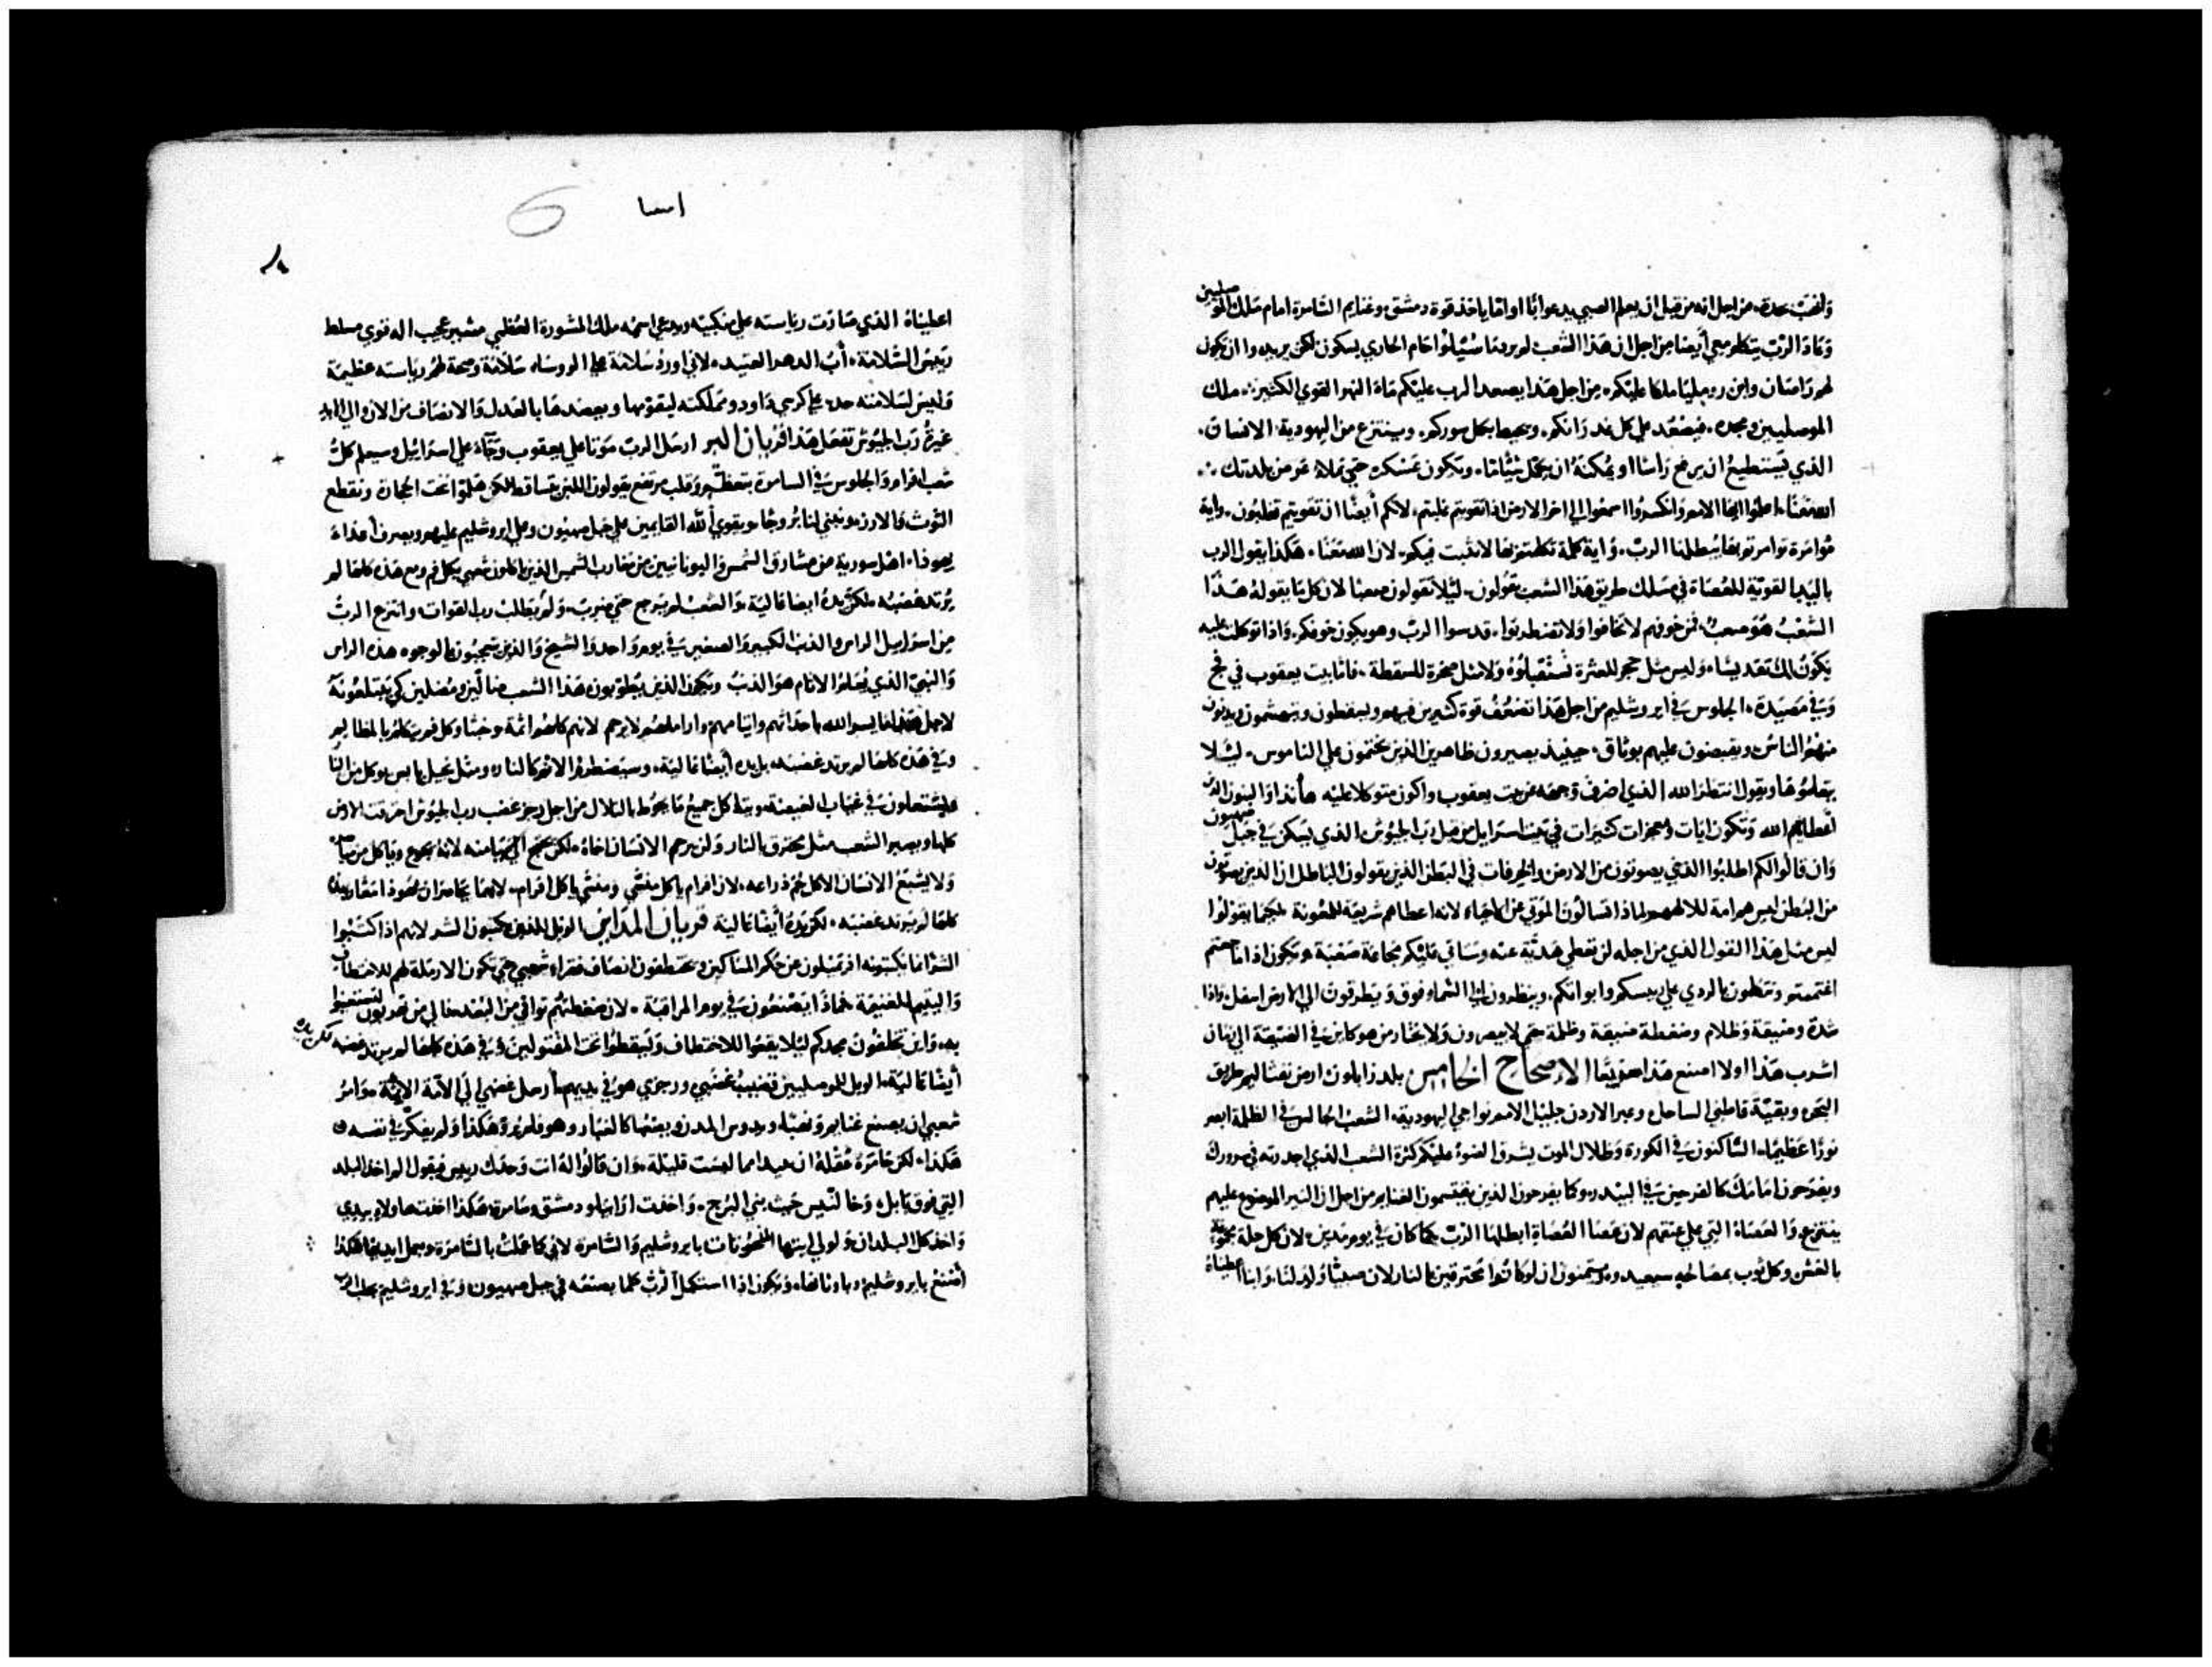 وانهب بحدة من اجل انه من قبل ان يعلم الصبي يدعوا ابًا او امًا ياخذ قوة دمشق وغنايم السامرة امام ملك الموصليين
وعاد الرب يتكلم معي أيضا من اجل ان هذا الشعب لم يريد ما شيلوا خام الجاري بسكون لكن يريدوا ان يكون
لهم راصان وابن روميليا ملكا عليكم من اجل هذا يصعد الرب عليكم ماء النهر القوي الكثير ملك
الموصليين ومجده فيصعد على كل واديكم ويحيط بكل سوركم وينتزع من اليهودية الانسان
الذي يستطيع ان يرفع راسا او يمكنه ان يكمل شيئاما وتكون عسكره حتى تملا عرض بلدتك
الله معنا اعلموا ايها الامم وانكسروا اسمعوا الى اخر الارض اذا تقويتم غلبتم لانكم أيضًا ان تقويتم تغلبون واية
موامرة توامرتم بها يبطلها الرب واية كلمة تكلمتم بها لا تثبت فيكم لان الله معنا هكذا يقول الرب
باليد القوية للعصاة في سلك طريق هذا الشعب يقولون ليلا تقولون صعبا لان كل ما يقوله هذا
الشعب هو صعب فمن خوفهم لا تخافوا ولا تضطربوا قدسوا الرب وهو يكون خوفكم واذا توكلت عليه
يكون لك تقديسا وليس مثل حجر للعثرة تستقبلوه ولا مثل صخرة للسقطة فاما بيت يعقوب في فخ
وفي مصيدة الجلوس في ايروشليم من اجل هذا تضعف قوة كثيرين فيهم ويسقطون ويتهشمون ويدنون
منهم الناس ويقبضون عليهم بوثاق حينيذ يصيرون ظاهرين الذين يختمون على الناموس ليلا
يتعلموها ويقول انتظر الله الذي اصرف وجهه عن بيت يعقوب واكون متوكلا عليه هانذا والبنون الذين
أعطانيهم الله وتكون ايات ومعجزات كثيرات في بيت اسرايل من قبل رب الجيوش الذي يسكن في جبل صهيون
وان قالوا لكم اطلبوا الذي يصوتون من الارض والخرفات في البطن الذين يقولون الباطل ان الذين يصوتون
من البطن ليس هم امة للاههم ولماذا تسالون الموتى عن الاحياء لانه اعطاهم شريعة للمعونة لكيما يقولوا
ليس مثل هذا القول الذي من اجله لن تعطي هدية عنه وستاتي عليكم مجاعة صعبة وتكون اذا ما جعتم
اغتممتم وتنطون بالردي على رييسكم وابواتكم وينظرون الى السماء فوق ويتطرقون الى الارض اسفل واذا
شدة وضيقة وظلام وضغطة ضيقة وظلمة حتى لا يبصرون ولا يحتار من هو كاين في الضيقة الى زمان
اشرب هذا اولا اصنع هذا سريعًا الاصحاح الخامس بلد زابلون ارض نفتاليم طريق
البحر وبقية قاطني الساحل وعبر الاردن جليل الامم نواحي اليهودية الشعب الجالس في الظلمة ابصر
نورًا عظيما الساكنون في الكورة وظلال الموت يشرق الضوء عليكم كثرة الشعب الذي احدرته في سرورك
ويفرحون امامك كالفرحين في البيدر وكما يفرحون الذين يقتسمون الغنايم من اجل ان النير الموضوع عليهم
ينتزع والعصاة التي على عنقهم لان عصا العصاة ابطلها الرب كما كان في يوم مدين لان كل حلة مجموعة
بالغش وكل ثوب بمصالحه سيعيده وسيتمنون ان لو كانوا محترقين بالنار لان صبيًا ولد لنا وابنا اعطيناه
اسا
اعطيناه الذي صارت رياسته على منكبيه ويدعى اسمه ملك المشورة العظمي مشير عجيب اله قوي مسلط
رييس السلامة أب الدهر العتيد لاني اورد سلامة على الروساء سلامة وصحة لهم رياسته عظيمة
وليس لسلامته حد على كرسي داود ومملكته ليقومها ويعضدها بالعدل والانصاف من الان والى الابد
غيرة رب الجيوش تفعل هذا قربان البر ارسل الرب موتا على يعقوب وجاء على اسرائيل وسيعلم كل
شعب افرام والجلوس في السامرة بتعظم وقلب مرتفع يقولون اللبن يتساقط لكن هلموا نحت الحجارة ونقطع
التوت والارز ونبني لنا بروجا ويقوي الله القايمين على جبل صهيون وعلى ايروشليم عليهم ويصرف أعداء
يهوذا اهل سورية من مشارق الشمس واليونانيين من مغارب الشمس الذين ياكلون شعبي بكل فم ومع هذه كلها لم
يرتد غضبه لكن يده ايضا عالية والشعب لم يرجع حتى ضرب ولم يطلب رب القوات وانتزع الرب
من اسرايل الراس والذنب الكبير والصغير في يوم واحد والشيخ والذين يتعجبون بالوجوه هذه الراس
والنبي الذي يعلم الاثام هو الذنب وتكون الذين يطوبون هذا الشعب ضالين ومضلين كي يبتلعونه
لاجل هذا ما يسر الله باحداثهم وايتامهم واراملهم لا يرحم لانهم كلهم اثمة وخبثا وكل فم يتكلم بالمظالم
وفي هذه كلها لم يرتد غضبه بل يده أيضًا عالية وسيضطرم الاثم كالنار ومثل نجيل يابس يوكل من النار
ويشتعلون في غياب الغيضة ويتاكل جميع ما يحوط بالتلال من اجل رجز غضب رب الجيوش احرقت الارض
كلها ويصير الشعب مثل محترق بالنار ولن يرحم الانسان اخاه لكن يجنح الى ميامنه لانه يجوع وياكل من مياسره
ولا يشبع الانسان الاكل لحم ذراعه لان افرام ياكل منشي ومنشي ياكل افرام لانهما يحاصران يهوذا معًا وبهذه
كلها لم يرتد غضبه لكن يده أيضًا عالية قربان المدابن الويل للذين يكتبون الشر لانهم اذا كتبوا
الشر انما يكتبونه اذ يميلون عن حكم المساكين ويختطفون انصاف فقراء شعبي حتى تكون الارملة لهم للاختطاف
واليتيم للغنيمة فماذا يصنعون في يوم المراقبة لان ضغطتهم توافي من البعد والى من تهربون لتستعينوا
به واين تخلفون مجدكم ليلا يقعوا للاختطاف وتسقطوا تحت المقتولين وفي هذه كلها لم يرتد غضبه لكن يده
أيضًا عالية الويل للموصليين قضيب غضبي ورجزي هو في يديهم أرسل غضبي الى الامة الاثيمة وامر
شعبي ان يصنع غنايم ونهبا ويدوس المدن ويجعلها كالغبار وهو فلم يروَّ هكذا ولم يفكر في نفسه
هكذا لكن خامره عقله ان يبيد امما ليست قليلة وان قالوا له انت وحدك رييس فيقول الم اخذ البلد
التي فوق بابل وخالنيس حيث بني البرج واخذت ارابيا ودمشق وسامرة هكذا اخذتها ولا يدي
واخذ كل البلدان ولولي ايتها المنحوتات بايروشليم والسامرة لاني كما عملت بالسامرة وبعمل ايديها هكذا
أصنع بايروشليم وباوثانها وتكون اذا استكمل الرب كلما يصنعه في جبل صهيون وفي ايروشليم يجلب الرب